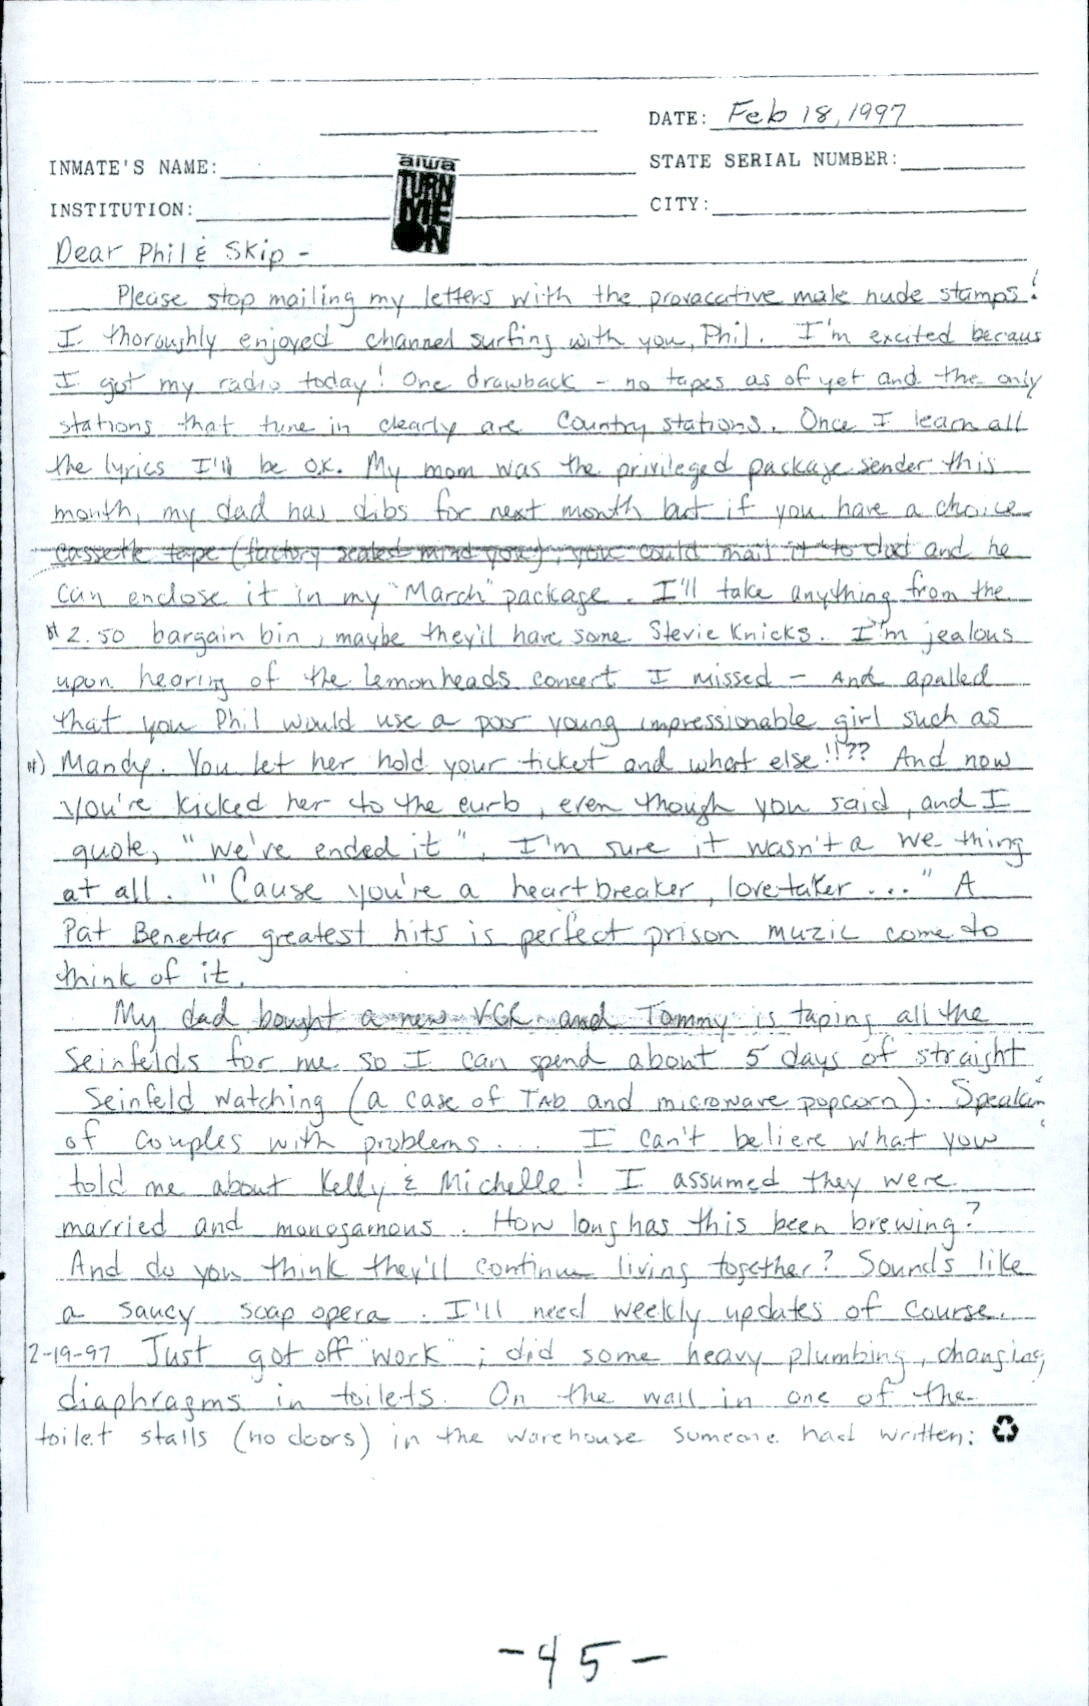 DATE: Feb 18, 1997
INMATE'S NAME:
STATE SERIAL NUMBER:
INSTITUTION:
CITY:
aiwa
TURN
ME
ON
Dear Phil & Skip -
Please stop mailing my letters with the provacative male nude stamps!
I thoroughly enjoyed channel surfing with you, Phil. I'm excited becaus
I got my radio today! One drawback - no tapes as of yet and the only
stations that tune in clearly are Country stations. Once I learn all
the lyrics I'll be O.K. My mom was the privileged package sender this
month, my dad has dibs for next month but if you have a choice
cassette tape (factory sealed mind you), you could mail it to dad and he
can enclose it in my "March" package. I'll take anything from the
$2.50 bargain bin, maybe they'll have some Stevie Knicks. I'm jealous
upon hearing of the Lemonheads concert I missed - And apalled
that you Phil would use a poor young impressionable girl such as
Mandy. You let her hold your ticket and what else!!?? And now
you're kicked her to the curb, even though you said, and I
quote, "we've ended it". I'm sure it wasn't a we thing
at all. "Cause you're a heartbreaker, lovetaker ..." A
Pat Benetar greatest hits is perfect prison muzic come to
think of it.
My dad bought a new VCR and Tommy is taping all the
Seinfelds for me so I can spend about 5 days of straight
Seinfeld watching (a case of TAb and microwave popcorn). Speakin
of couples with problems ... I can't believe what you
told me about Kelly & Michelle! I assumed they were
married and monogamous. How long has this been brewing?
And do you think they'll continue living together? Sounds like
a saucy soap opera. I'll need weekly updates of course.
2-19-97 Just got off "work"; did some heavy plumbing, changing
diaphragms in toilets. On the wall in one of the
toilet stalls (no doors) in the warehouse someone had written:
-45-